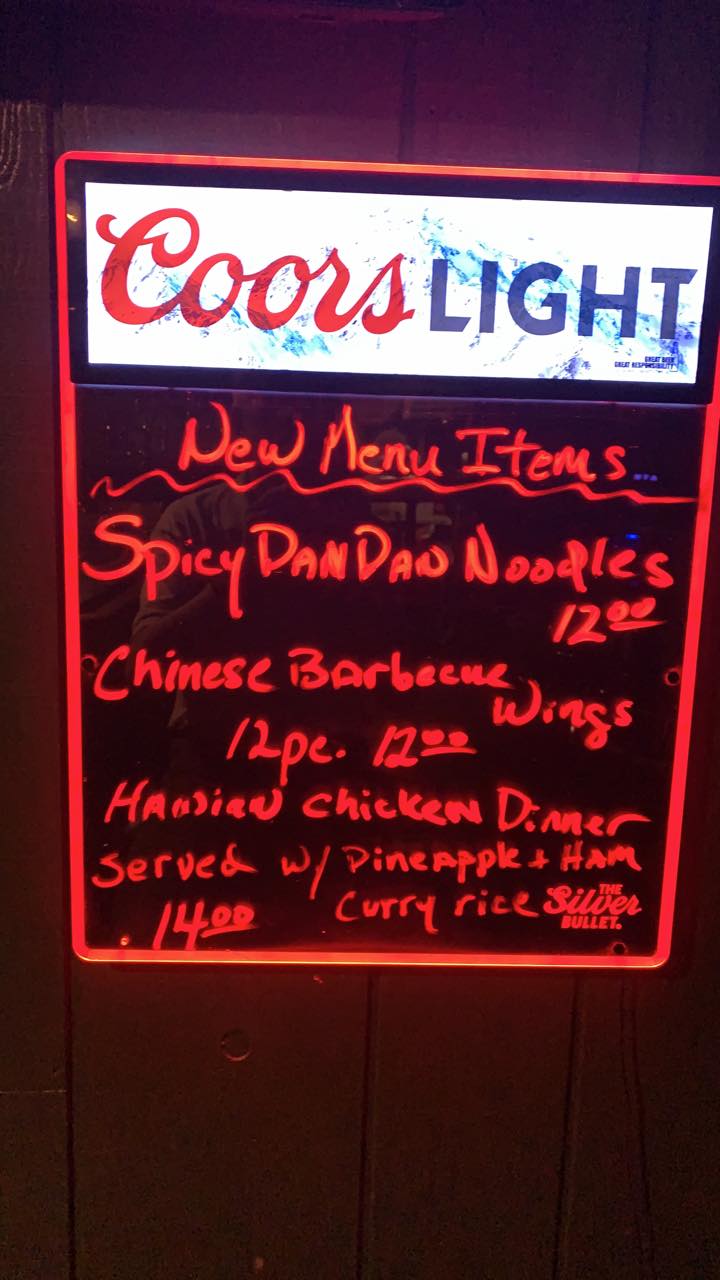 Coors LIGHT
GREAT BEER
GREAT RESPONSIBILITY
New Menu Items
Spicy Dan Dan Noodles
12.00
Chinese Barbecue
Wings
12pc. 12.00
Hawaiian Chicken Dinner
Served w/ Pineapple + Ham
14.00 Curry rice
THE
Silver
BULLET.